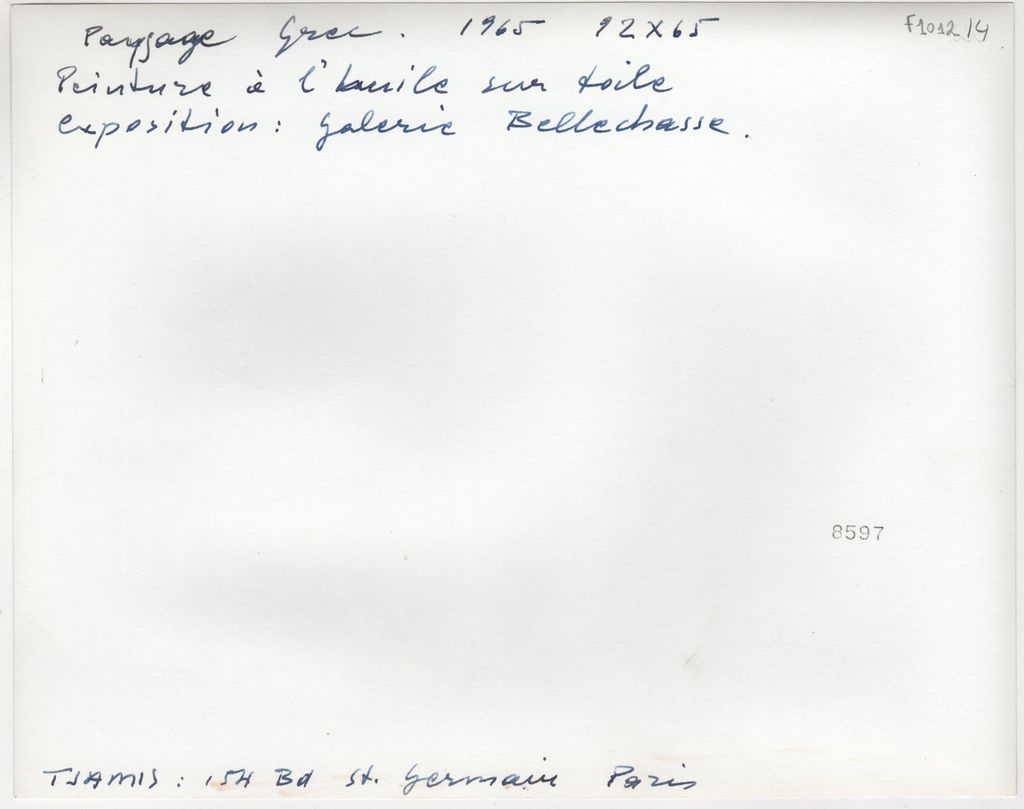 Paysage Grec. 1965 92X65
F1012/4
Peinture à l'huile sur toile
exposition: Galerie Bellechasse.
8597
TSAMIS: 154 Bd St. Germain Paris